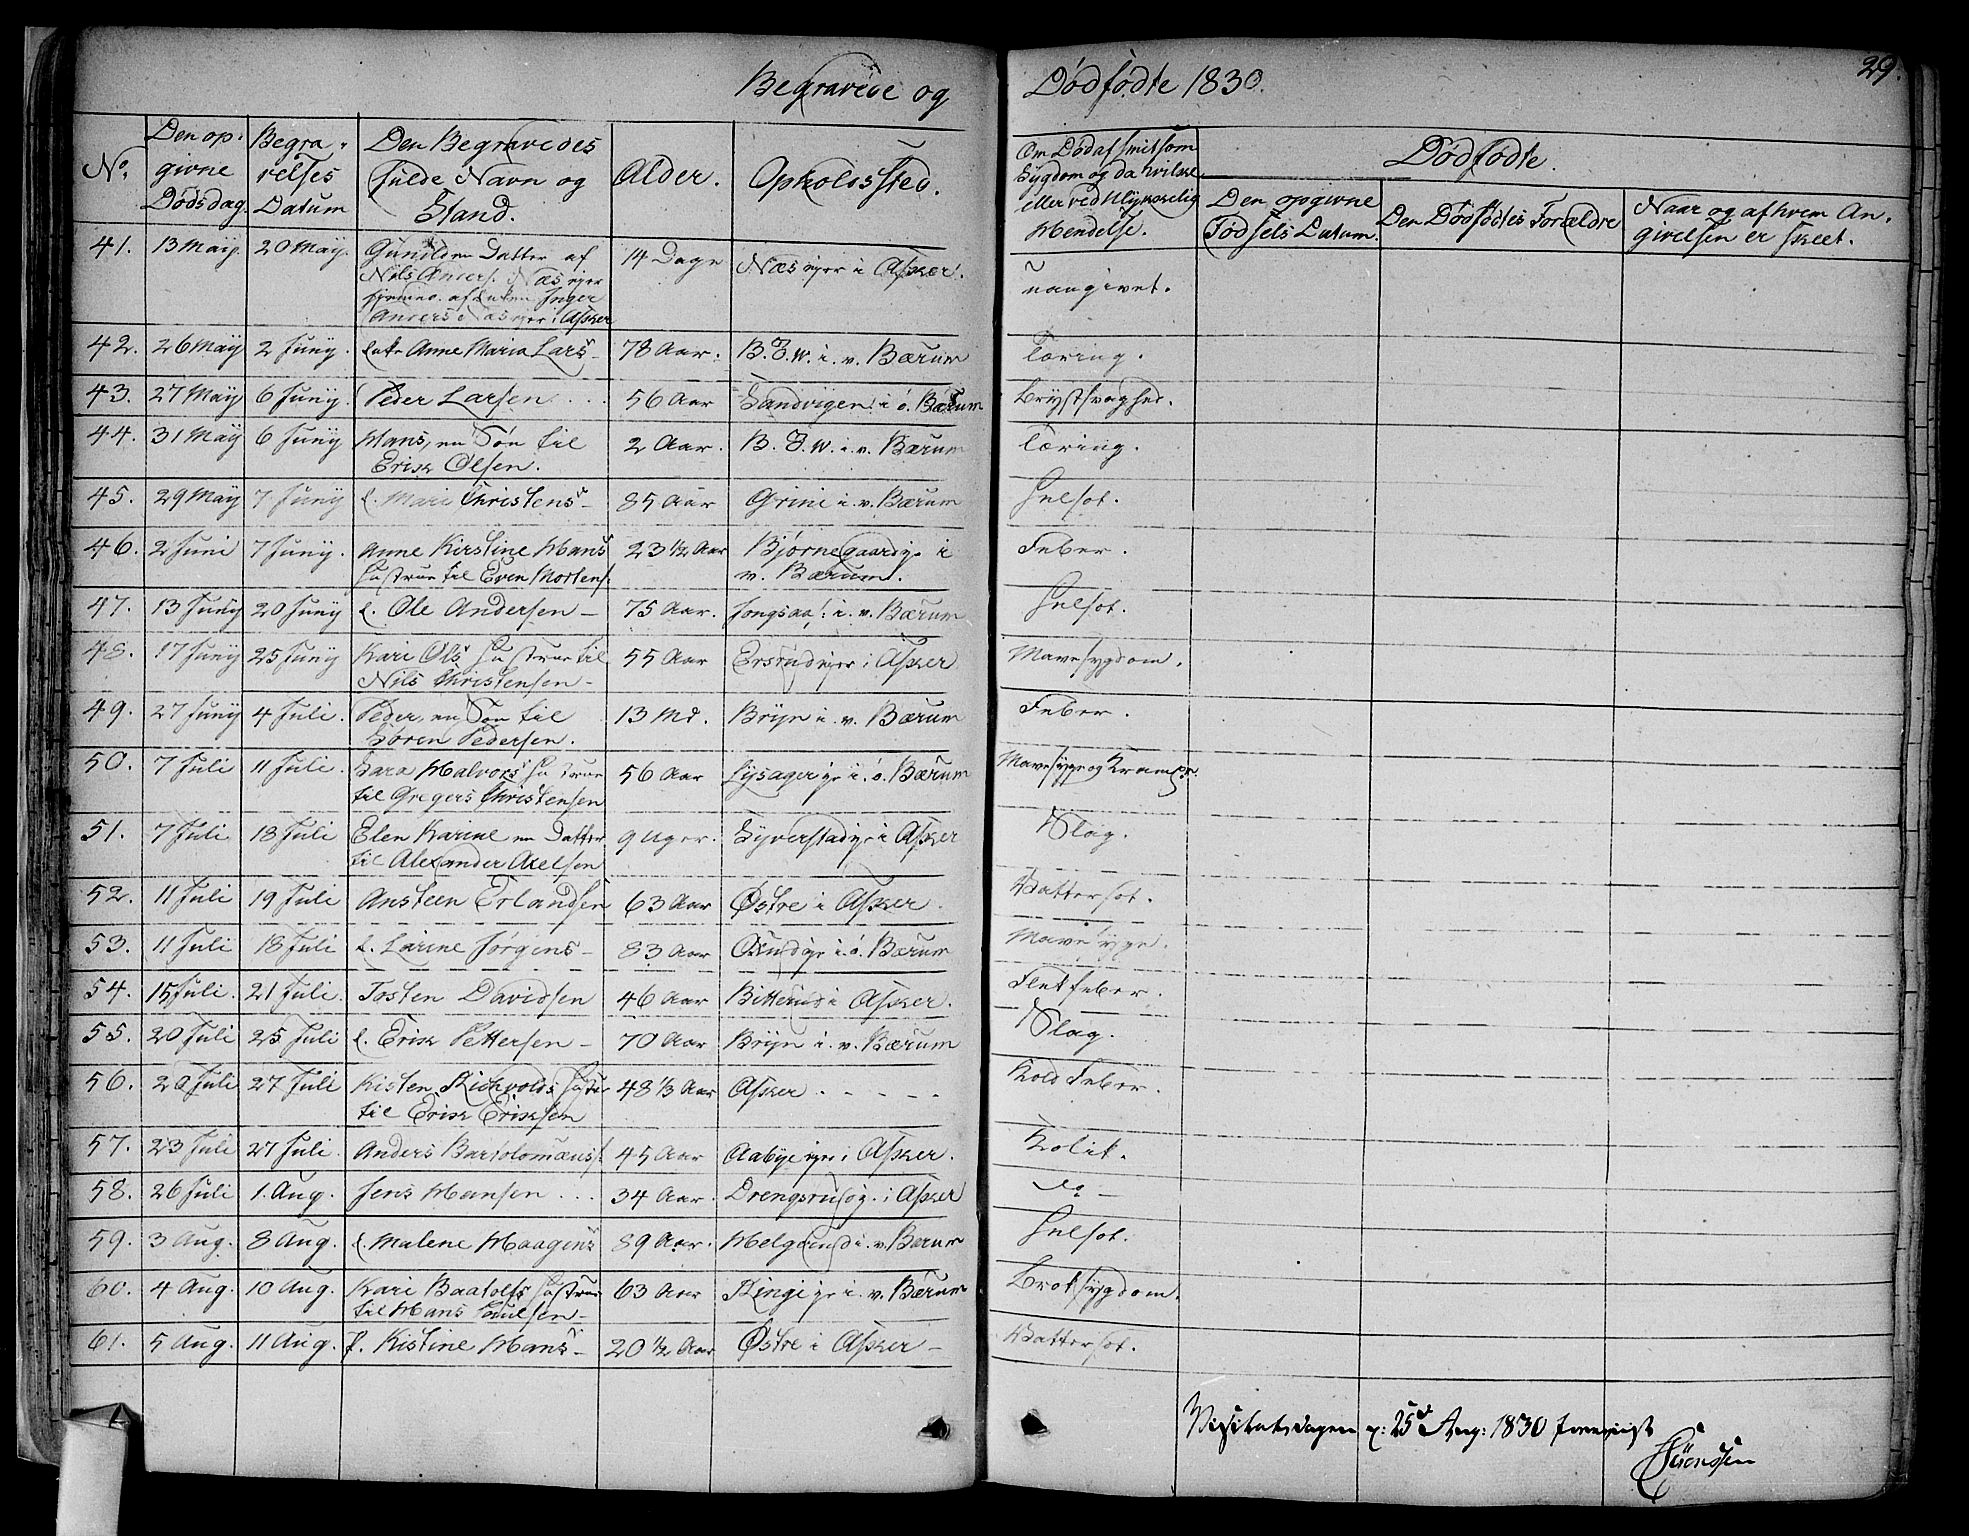 Begravede og Dødfødte 1830. 29.
No. Den opgivne Dødsdag. Begravelses Datum Den Begravedes fulde Navn og Stand. Alder. Opholdssted. Om Død af smitsom Sygdom og da hvilken, eller ved Ulykkelig Hendelse. Dødfødte. Den opgivne Fødsels Datum. Den Dødfødtes Forældre Naar og af hvem Angivelsen er skeet.
41. 13 Maij. 20 Maij. Gunild en Datter af
Nils Anders. Næs
Inger
Anders Næs eier i Asker 14 Dage Næs eier i Asker. uangivet.
42. 26 Maij 2 Junij. Enke Anne Maria Lars- 78 Aar. B. J. W. i v. Bærum Tæring.
43. 27 Maij 6 Junij. Peder Larsen ... 56 Aar Sandvigen i ø. Bærum Brystsvaghed.
44. 31 Maij 6 Junij Hans, en Søn til
Erik Olsen. 2 Aar. B. J. W. i v. Bærum Tæring.
45. 29 Maij 7 Junij l. Mari Christens- 85 Aar Grini i v. Bærum Gulsot.
46. 2 Juni 7 Junij. Anne Kirstine Hans
Hustrue til Even Mortens. 23 1/2 Aar Bjørnegaard i
v. Bærum. Feber.
47. 13 Junij 20 Junij l. Ole Andersen - 75 Aar. i v. Bærum Gulsot.
48. 17 Junij 25 Junij Kari Ols Hustrue til
Nils Christensen- 55 Aar eier i Asker Mavesygdom.
49. 27 Junij 4 Juli. Peder, en Søn til
Søren Pedersen. 13 Md. Bryn i v. Bærum Feber.
50. 7 Juli 11 Juli. Sara Halvors Hustrue
til Gregers Christensen 56 Aar Lysager i ø. Bærum Mavesyge og Krampe
51. 7 Juli 18 Juli Elen Karine en Datter
til Alexander Axelsen 9 Uger. Syverstad i Asker Slag.
52. 11 Juli 19 Juli Ansteen Erlandsen 63 Aar Østre i Asker. Vattersot.
53. 11 Juli 18 Juli l. Larine Jørgens- 83 Aar i ø. Bærum Mavesyge.
54. 15 Juli. 21 Juli. Tosten Davidsen 46 Aar Bitterud i Asker. feber.
55. 20 Juli 25 Juli l. Erik Pettersen - 70 Aar Bryn i v. Bærum Slag.
56. 20 Juli 27 Juli Kisten Hustrue
til Erik Eriksen 48 1/3 Aar Asker . . . . . Kold Feber.
57. 23 Juli 27 Juli. Anders Bartolomæus 45 Aar Aabye eier i Asker. Kolik.
58. 26 Juli 1. Aug. Jens Hansen ... 34 Aar. Drengsrud i Asker do -
59. 3 Aug. 8 Aug. l. Malene Haagens 89 Aar. i v. Bærum Gulsot.
60. 4 Aug. 10 Aug. Kari Baatolfs Hustrue
til Hans Poulsen- 63 Aar Ringi i v. Bærum Broksygdom.
61. 5 Aug. 11 Aug. P. Kistine Hans- 20 1/2 Aar Østre i Asker - Vattersot.
Visitatsdagen 25de Aug: 1830 foreviist